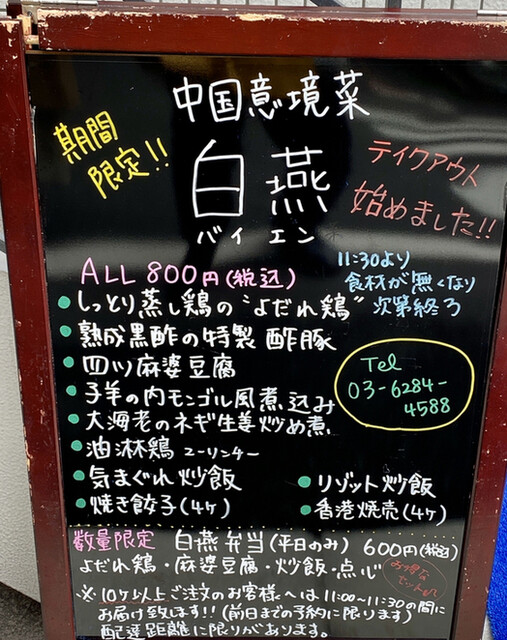 中国意境菜
期間
限定!!
白燕
バイエン
テイクアウト
始めました!!
11:30より
食材が無くなり
次第終了
ALL 800円(税込)
●しっとり蒸し鶏の"よだれ鶏"
●熟成黒酢の特製 酢豚
●四川麻婆豆腐
●子羊の内モンゴル風煮込み
●大海老のネギ生姜炒め煮
●油淋鶏 ユーリンチー
●気まぐれ炒飯
●リゾット炒飯
●焼き餃子(4ヶ)
●香港焼売(4ヶ)
Tel
03-6284-
4588
数量限定 白燕弁当(平日のみ) 600円(税込)
よだれ鶏・麻婆豆腐・炒飯・点心
お得な
セット
※10ヶ以上ご注文のお客様へは11:00〜11:30の間に
お届け致します!!(前日までの予約に限ります)
配達距離に限りがあります。